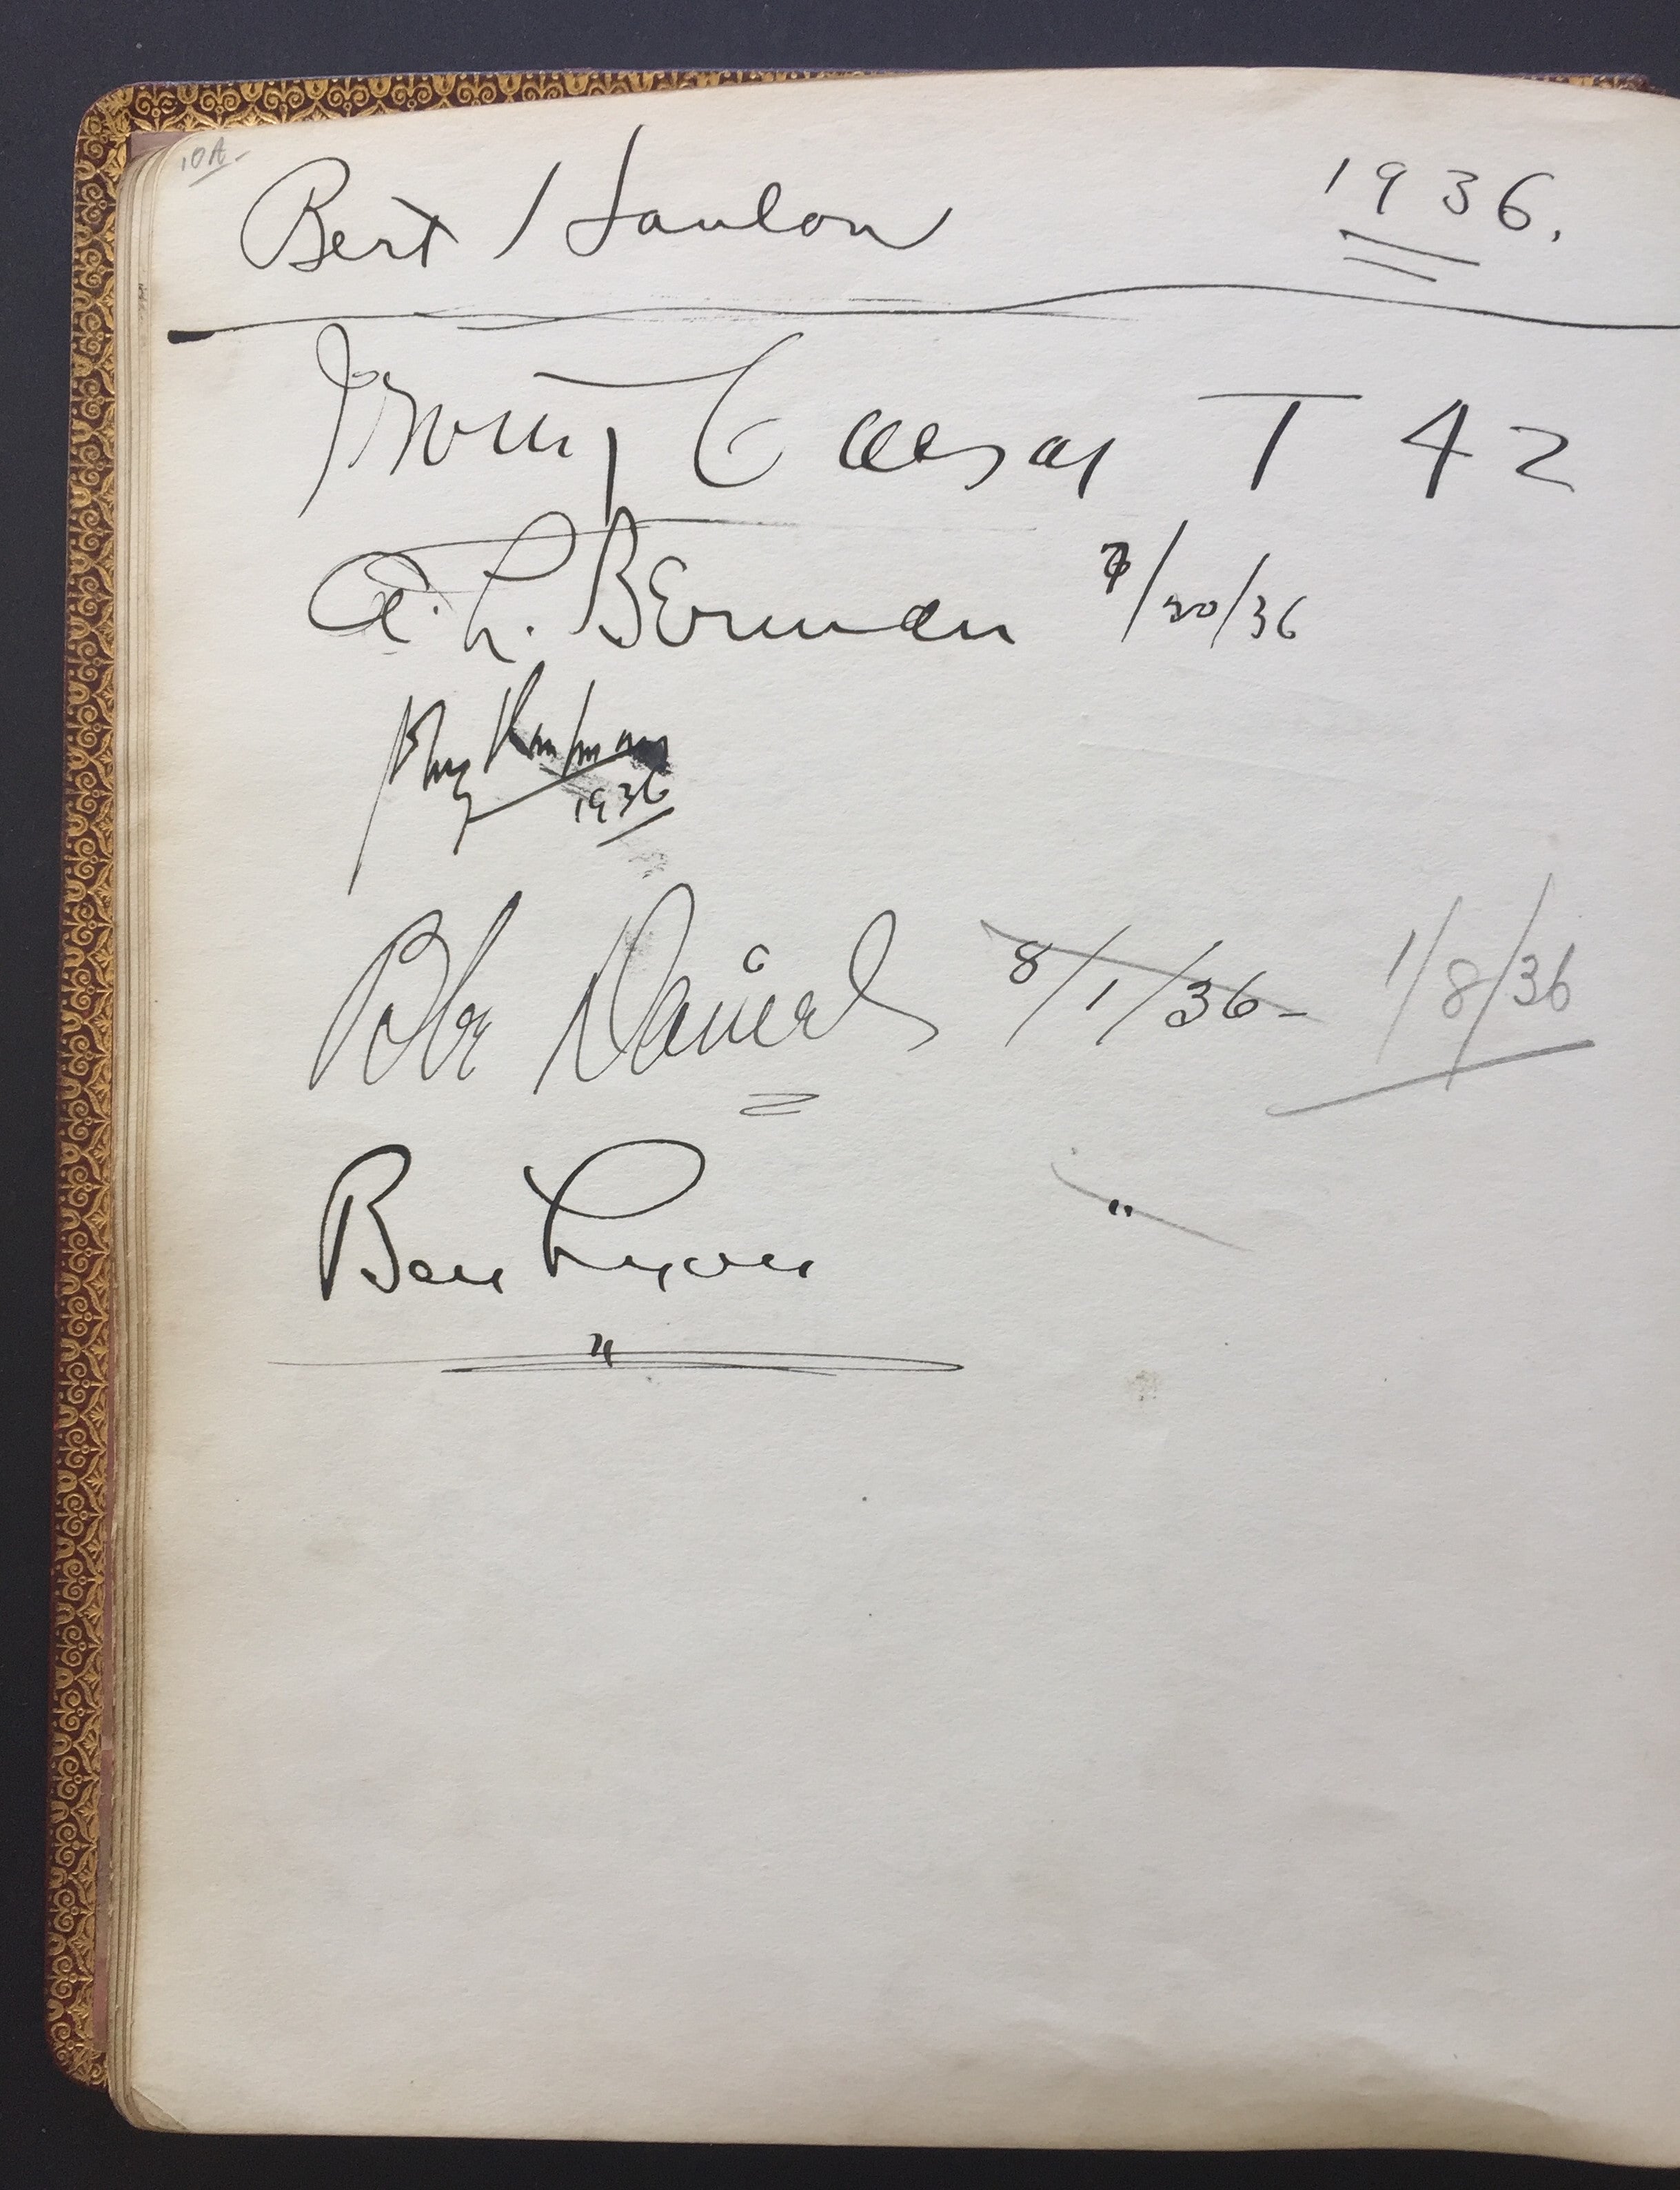 10A-
Bert Hanlon 1936.
Irving Caesar T 42
A. L. Berman 7/20/36
1936
Bebe Daniels 8/1/36- 1/8/36
Ben Lyon "
"